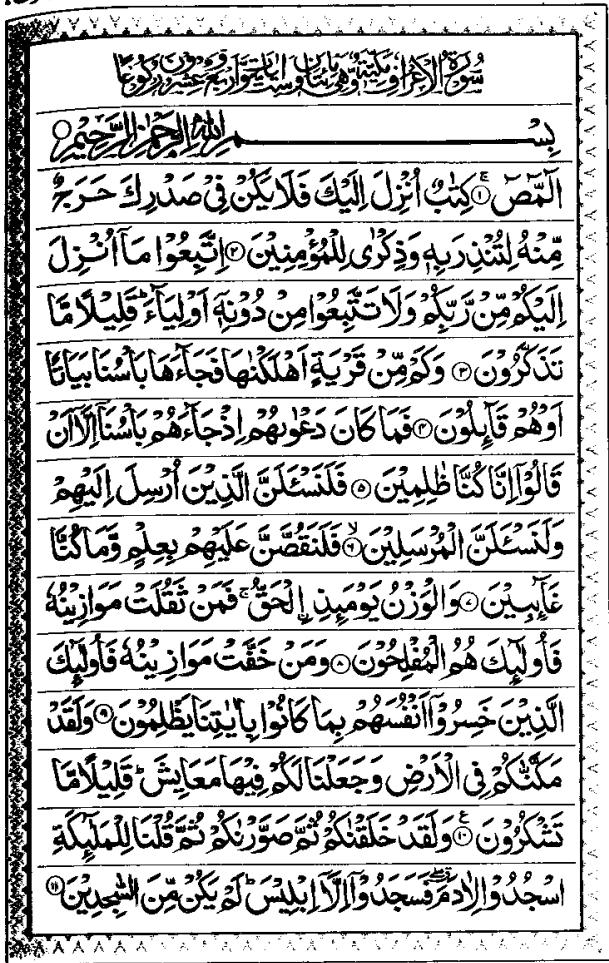 سُوْرَةُ الْاَعْرَافِ مَكِّيَّةٌ وَّهِیَ مِائَتَانِ وَسِتُّ اٰیَاتٍ وَّاَرْبَعٌ وَّعِشْرُوْنَ رُكُوْعًا
بِسْمِ اللّٰهِ الرَّحْمٰنِ الرَّحِیْمِ
الٓمّٓصٓ ۚ﴿۱﴾ كِتٰبٌ اُنْزِلَ اِلَیْكَ فَلَا یَكُنْ فِیْ صَدْرِكَ حَرَجٌ
مِّنْهُ لِتُنْذِرَ بِهٖ وَذِكْرٰی لِلْمُؤْمِنِیْنَ ﴿۲﴾ اِتَّبِعُوْا مَاۤ اُنْزِلَ
اِلَیْكُمْ مِّنْ رَّبِّكُمْ وَلَا تَتَّبِعُوْا مِنْ دُوْنِهٖۤ اَوْلِیَآءَ ؕ قَلِیْلًا مَّا
تَذَكَّرُوْنَ ﴿۳﴾ وَكَمْ مِّنْ قَرْیَةٍ اَهْلَكْنٰهَا فَجَآءَهَا بَاْسُنَا بَیَاتًا
اَوْ هُمْ قَآئِلُوْنَ ﴿۴﴾ فَمَا كَانَ دَعْوٰىهُمْ اِذْ جَآءَهُمْ بَاْسُنَاۤ اِلَّاۤ اَنْ
قَالُوْۤا اِنَّا كُنَّا ظٰلِمِیْنَ ﴿۵﴾ فَلَنَسْـَٔلَنَّ الَّذِیْنَ اُرْسِلَ اِلَیْهِمْ
وَلَنَسْـَٔلَنَّ الْمُرْسَلِیْنَ ۙ﴿۶﴾ فَلَنَقُصَّنَّ عَلَیْهِمْ بِعِلْمٍ وَّمَا كُنَّا
غَآئِبِیْنَ ﴿۷﴾ وَالْوَزْنُ یَوْمَئِذِ ِ۟الْحَقُّ ۚ فَمَنْ ثَقُلَتْ مَوَازِیْنُهٗ
فَاُولٰٓئِكَ هُمُ الْمُفْلِحُوْنَ ﴿۸﴾ وَمَنْ خَفَّتْ مَوَازِیْنُهٗ فَاُولٰٓئِكَ
الَّذِیْنَ خَسِرُوْۤا اَنْفُسَهُمْ بِمَا كَانُوْا بِاٰیٰتِنَا یَظْلِمُوْنَ ﴿۹﴾ وَلَقَدْ
مَكَّنّٰكُمْ فِی الْاَرْضِ وَجَعَلْنَا لَكُمْ فِیْهَا مَعَایِشَ ؕ قَلِیْلًا مَّا
تَشْكُرُوْنَ ﴿۱۰﴾ۧ وَلَقَدْ خَلَقْنٰكُمْ ثُمَّ صَوَّرْنٰكُمْ ثُمَّ قُلْنَا لِلْمَلٰٓئِكَةِ
اسْجُدُوْا لِاٰدَمَ ۖۗ فَسَجَدُوْۤا اِلَّاۤ اِبْلِیْسَ ؕ لَمْ یَكُنْ مِّنَ السّٰجِدِیْنَ ﴿۱۱﴾